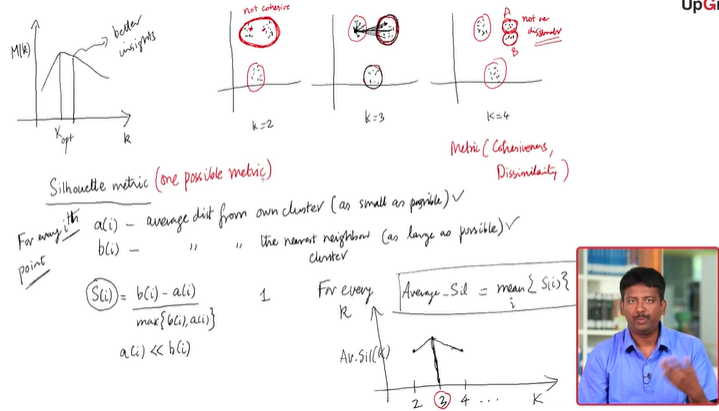 UpGr
not cohesive
M(k)
better
insights
K opt
k
k=2
k=3
k=4
A
B
not very
dissimilar
Metric (Cohesiveness,
Dissimilarity)
Silhouette metric (one possible metric)
For every ith
point
a(i) - average dist from own cluster (as small as possible) ✓
b(i) - " " the nearest neighbour (as large as possible) ✓
cluster
S(i) = b(i) - a(i)
max{b(i), a(i)}
1
a(i) << b(i)
For every
k
Average_Sil = mean{S(i)}
i
Av.Sil(k)
2 3 4 ... K